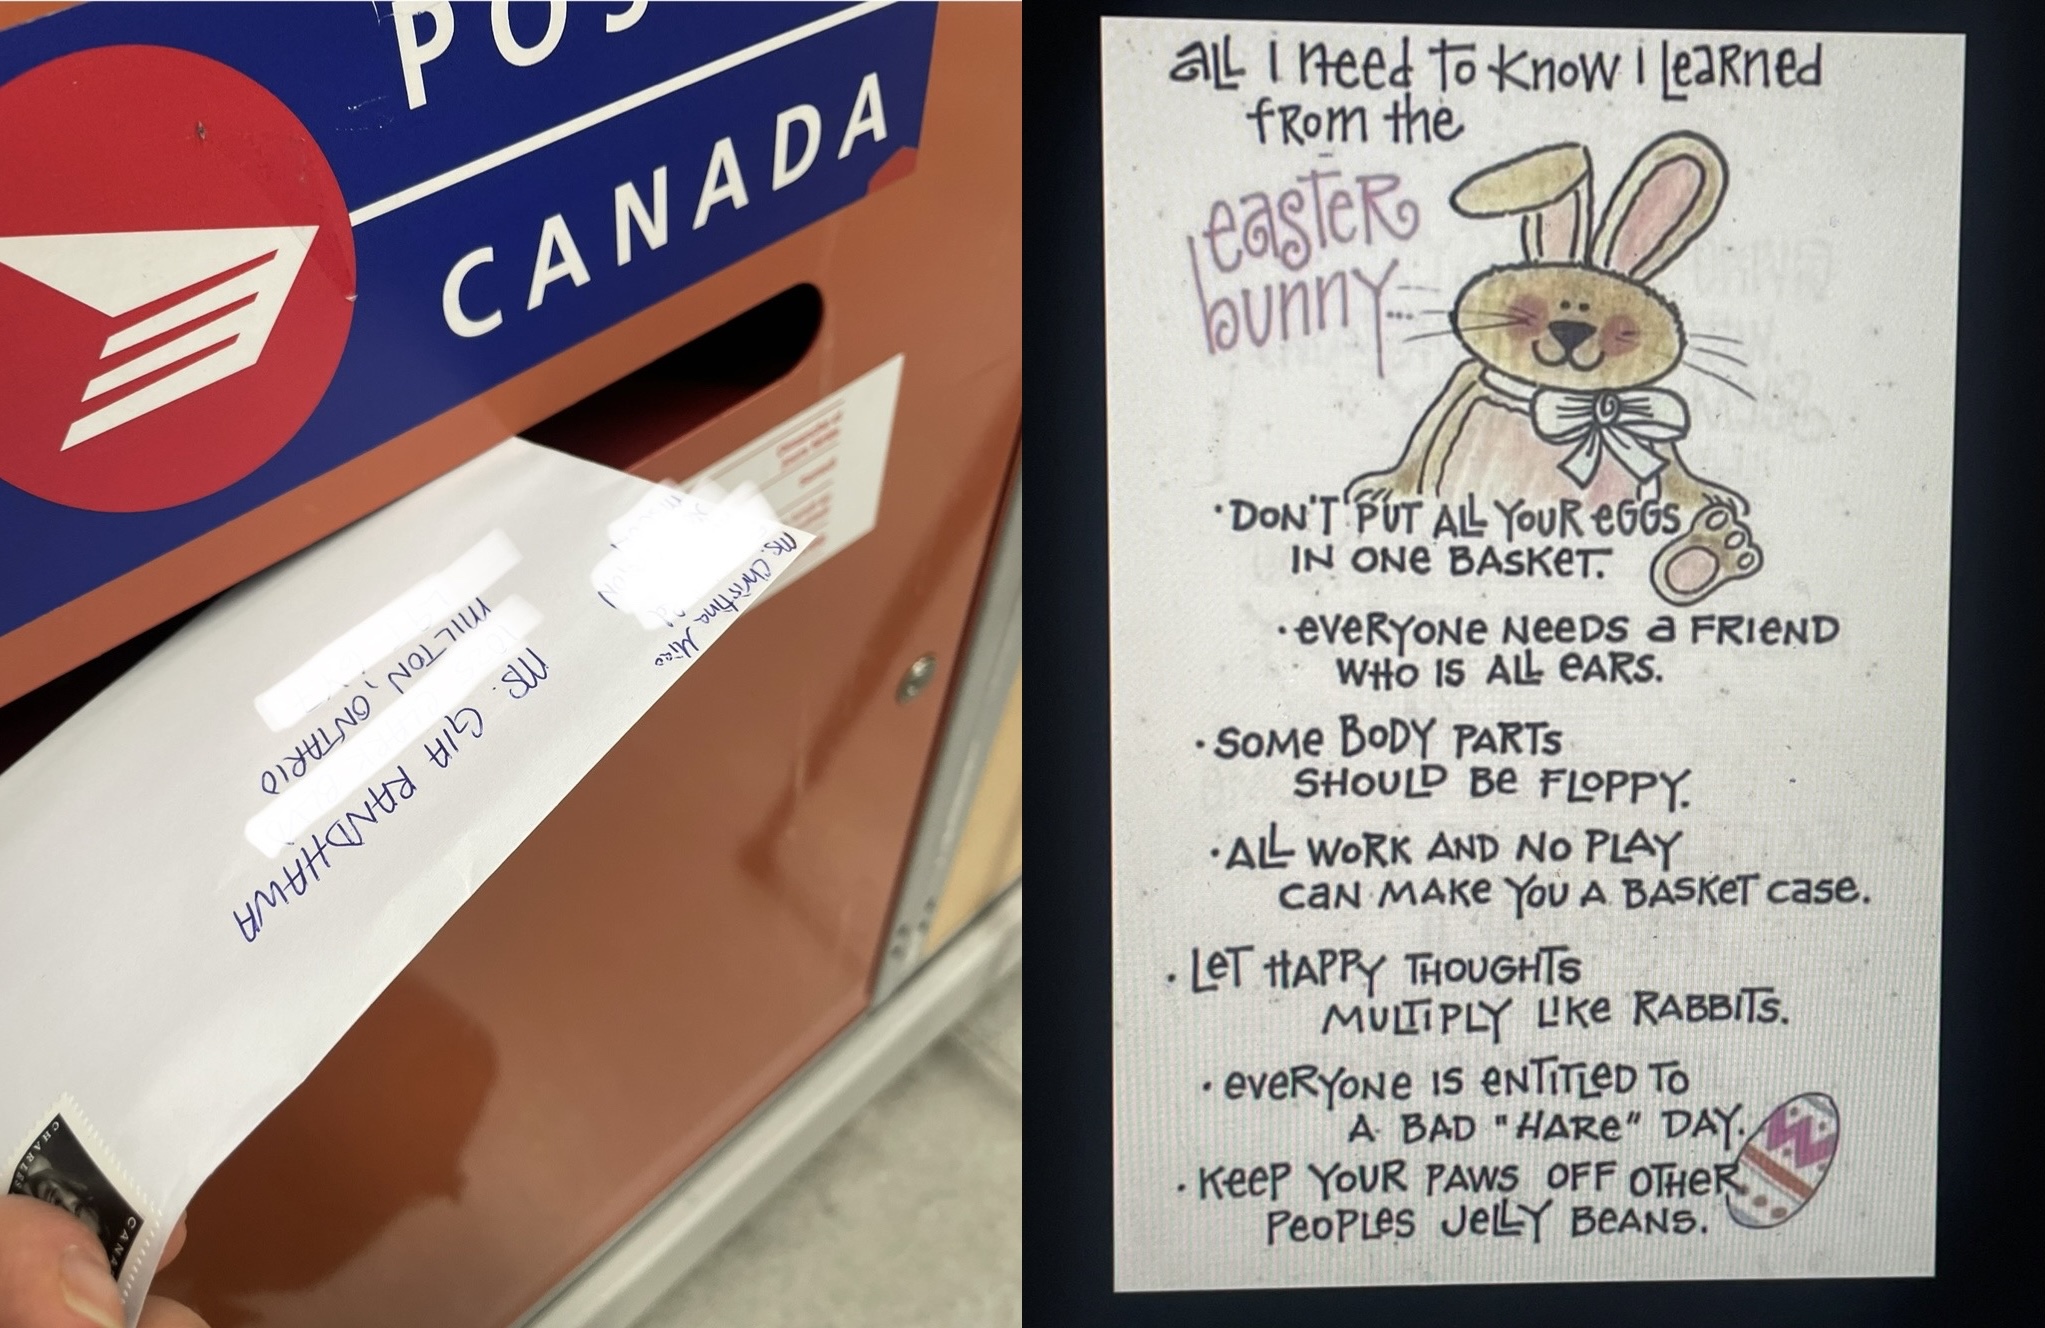 POS
CANADA
Ms. Christina Miao
MS. GIA RANDHAWA
MILTON, ONTARIO
CHARLES
CANADA
all i need to know i learned
from the
easter
bunny...
• DON'T PUT ALL YOUR eGGS
IN ONe BASKeT.
• eVeRYONe NeeDS a FRIeND
WHO IS ALL eARS.
• SOMe BODY PARTS
SHOULD Be FLOPPY.
• ALL WORK AND NO PLAY
CAN MAKe YOU A BASKeT CASe.
• LeT HAPPY THOUGHTS
MULTiPLY LIKe RABBITS.
• eVeRYONe IS eNTITLeD TO
A BAD "HARe" DAY.
• KeeP YOUR PAWS OFF OTHeR
PeOPLeS JeLLY BeANS.